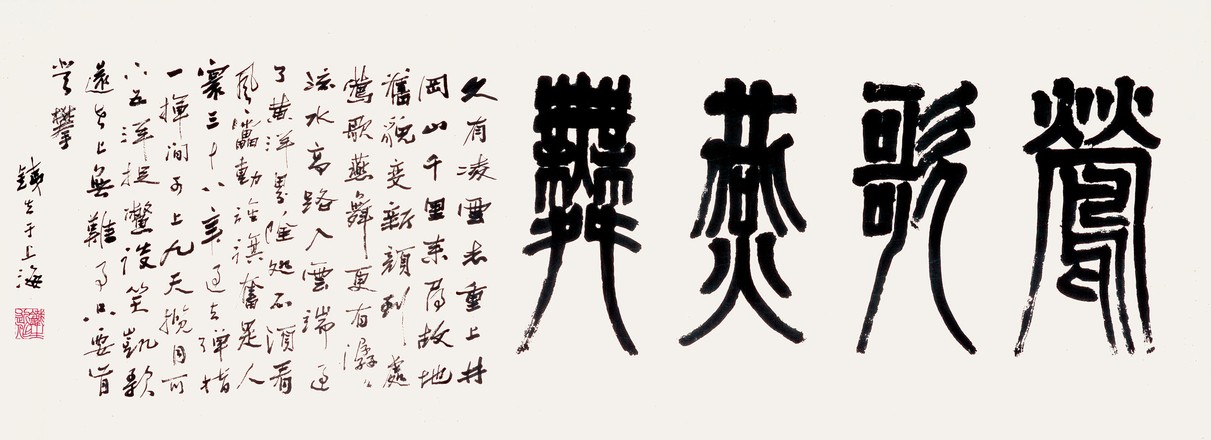 鶯歌燕舞
久有凌雲志重上井
岡山千里來尋故地
舊貌變新顏到處
鶯歌燕舞更有潺〻
流水高路入雲端過
了黃洋界險処不須看
風雷動旌旗奮是人
寰三十八年過去彈指
一揮間可上九天攬月可
下五洋捉鱉談笑凱歌
還世上無難事只要肯
登攀
于上海